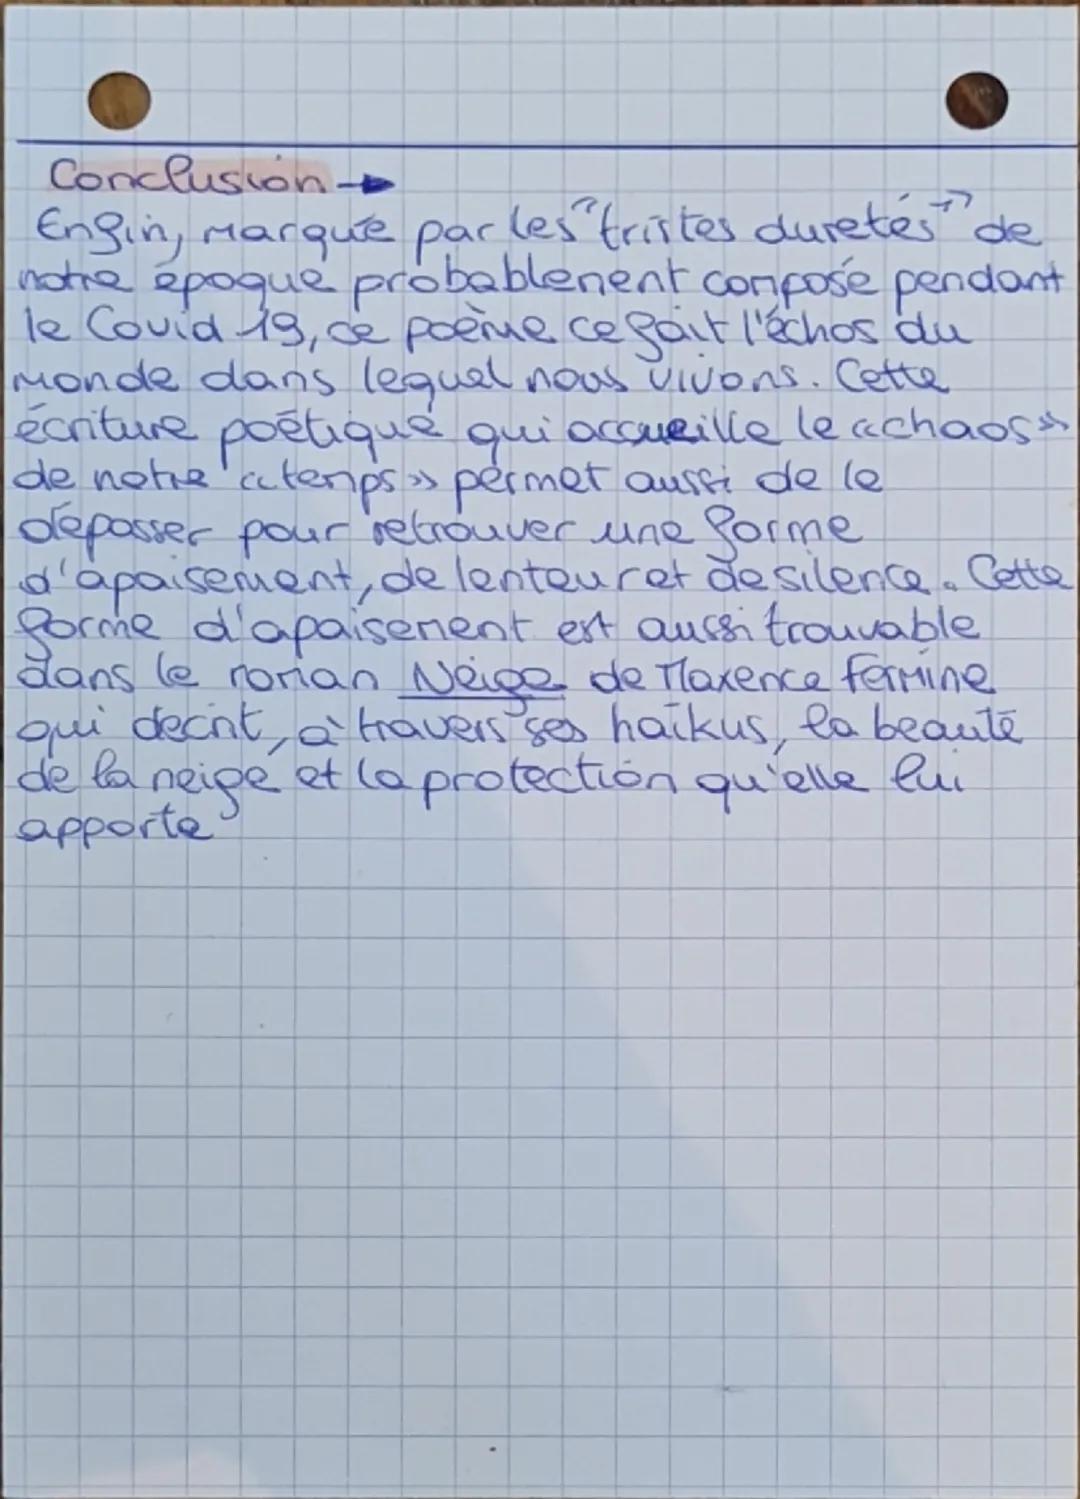 Conclusion →
Enfin, marqué par les "tristes duretés" de
notre époque probablement composé pendant
le Covid 19, ce poème ce fait l'échos du
monde dans lequel nous vivons. Cette
écriture poétique qui accueille le «chaos»
de notre «temps» permet aussi de le
dépasser pour retrouver une forme
d'apaisement, de lenteur et de silence. Cette
forme d'apaisement est aussi trouvable
dans le roman Neige de Maxence Fermine
qui decrit, à travers ses haïkus, la beauté
de la neige et la protection qu'elle lui
apporte